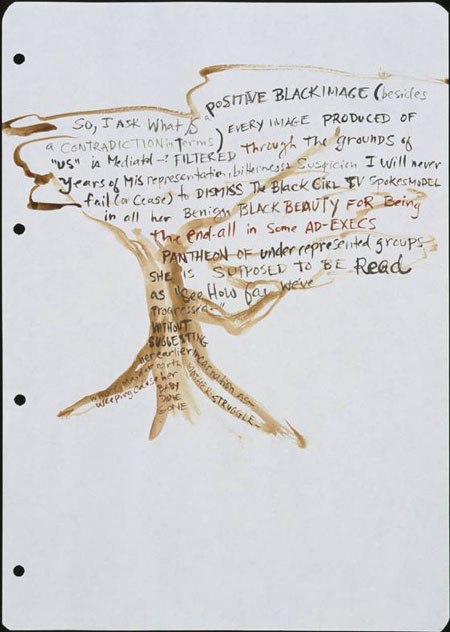 So, I ASK What is a POSITIVE BLACK IMAGE (besides
a CONTRADICTION in Terms) EVERY IMAGE PRODUCED OF
"US" is Mediated -? FILTERED Through The grounds of
Years of Misrepresentation bitterness & Suspicion I Will never
fail (or Cease) to DISMISS The Black GIRL TV SPOKESMODEL
in all her Benign BLACK BEAUTY FOR Being
the end-all in Some AD-EXECS
PANTHEON OF underrepresented groups
SHE is SUPPOSED TO BE Read
as "See How far We've
Progressed-"
WITHOUT
SUGGESTING
her earlier incarnation as
MOTHER STRUGGLE
Weeping Cause her
BABY
DONE
GONE